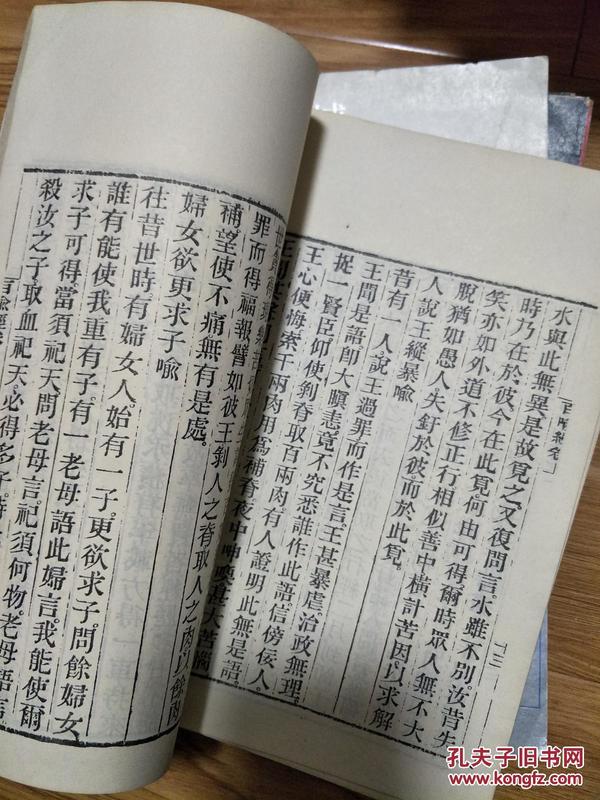 水與此無異。是故覓之。又復問言。水雖不別。汝昔失
時乃在於彼。今在此覓。何由可得。爾時眾人無不大
笑。亦如外道不修正行。相似善中。橫計苦困。以求解
脫。猶如愚人失釪於彼。而於此覓。
人說王縱暴喻
昔有一人。說王過罪而作是言。王甚暴虐。治政無理。
王聞是語。即大瞋恚。竟不究悉誰作此語。信傍佞人。
捉一賢臣。仰使剝脊。取百兩肉。有人證明此無是語。
王心便悔。索千兩肉。用為補脊。夜中呻喚。甚大苦惱。
十三
罪而得福報。譬如彼王。剝人之脊。取人之肉。以餘肉
補。望使不痛。無有是處。
婦女欲更求子喻
往昔世時。有婦女人。始有一子。更欲求子。問餘婦女。
誰有能使我重有子。有一老母語此婦言。我能使爾
求子可得。當須祀天。問老母言。祀須何物。老母語言。
殺汝之子。取血祀天。必得多子。
孔夫子旧书网
www.kongfz.com